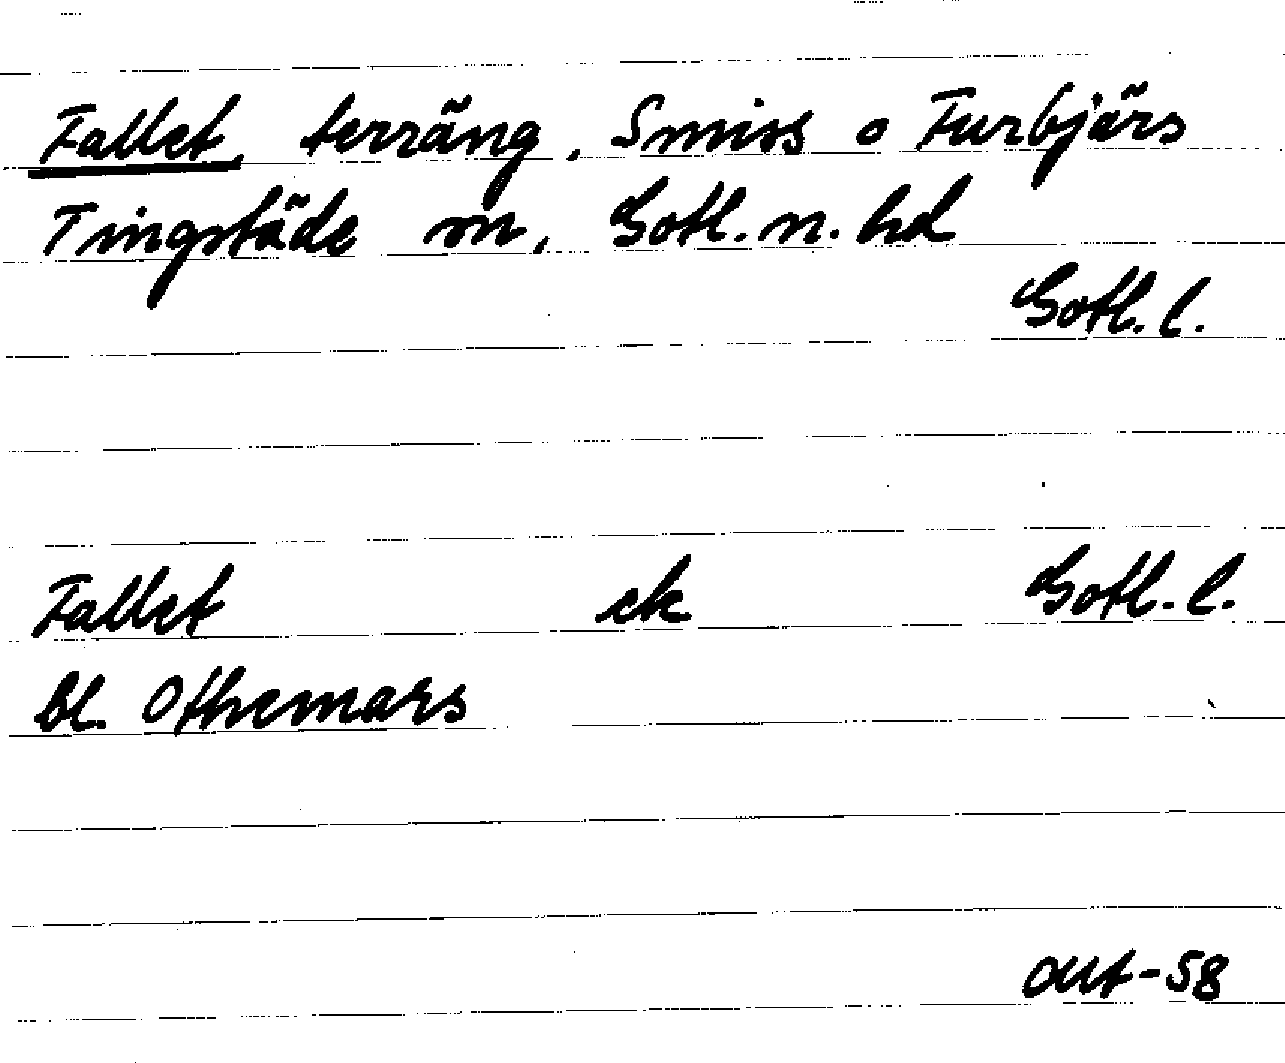 Fallet, terräng, Smiss o Furbjärs
Tingstäde sn, Gotl. n. hd
Gotl. l.
Fallet ek Gotl. l.
bl. Othemars
out-58